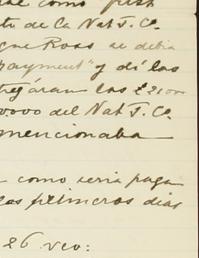 como
de Co Nat T. Co.
Ross se debia
payment" y di las
las £21000
000 del Nat T. Co.
mencionaba
como seria paga
los primeros dias
26 veo: